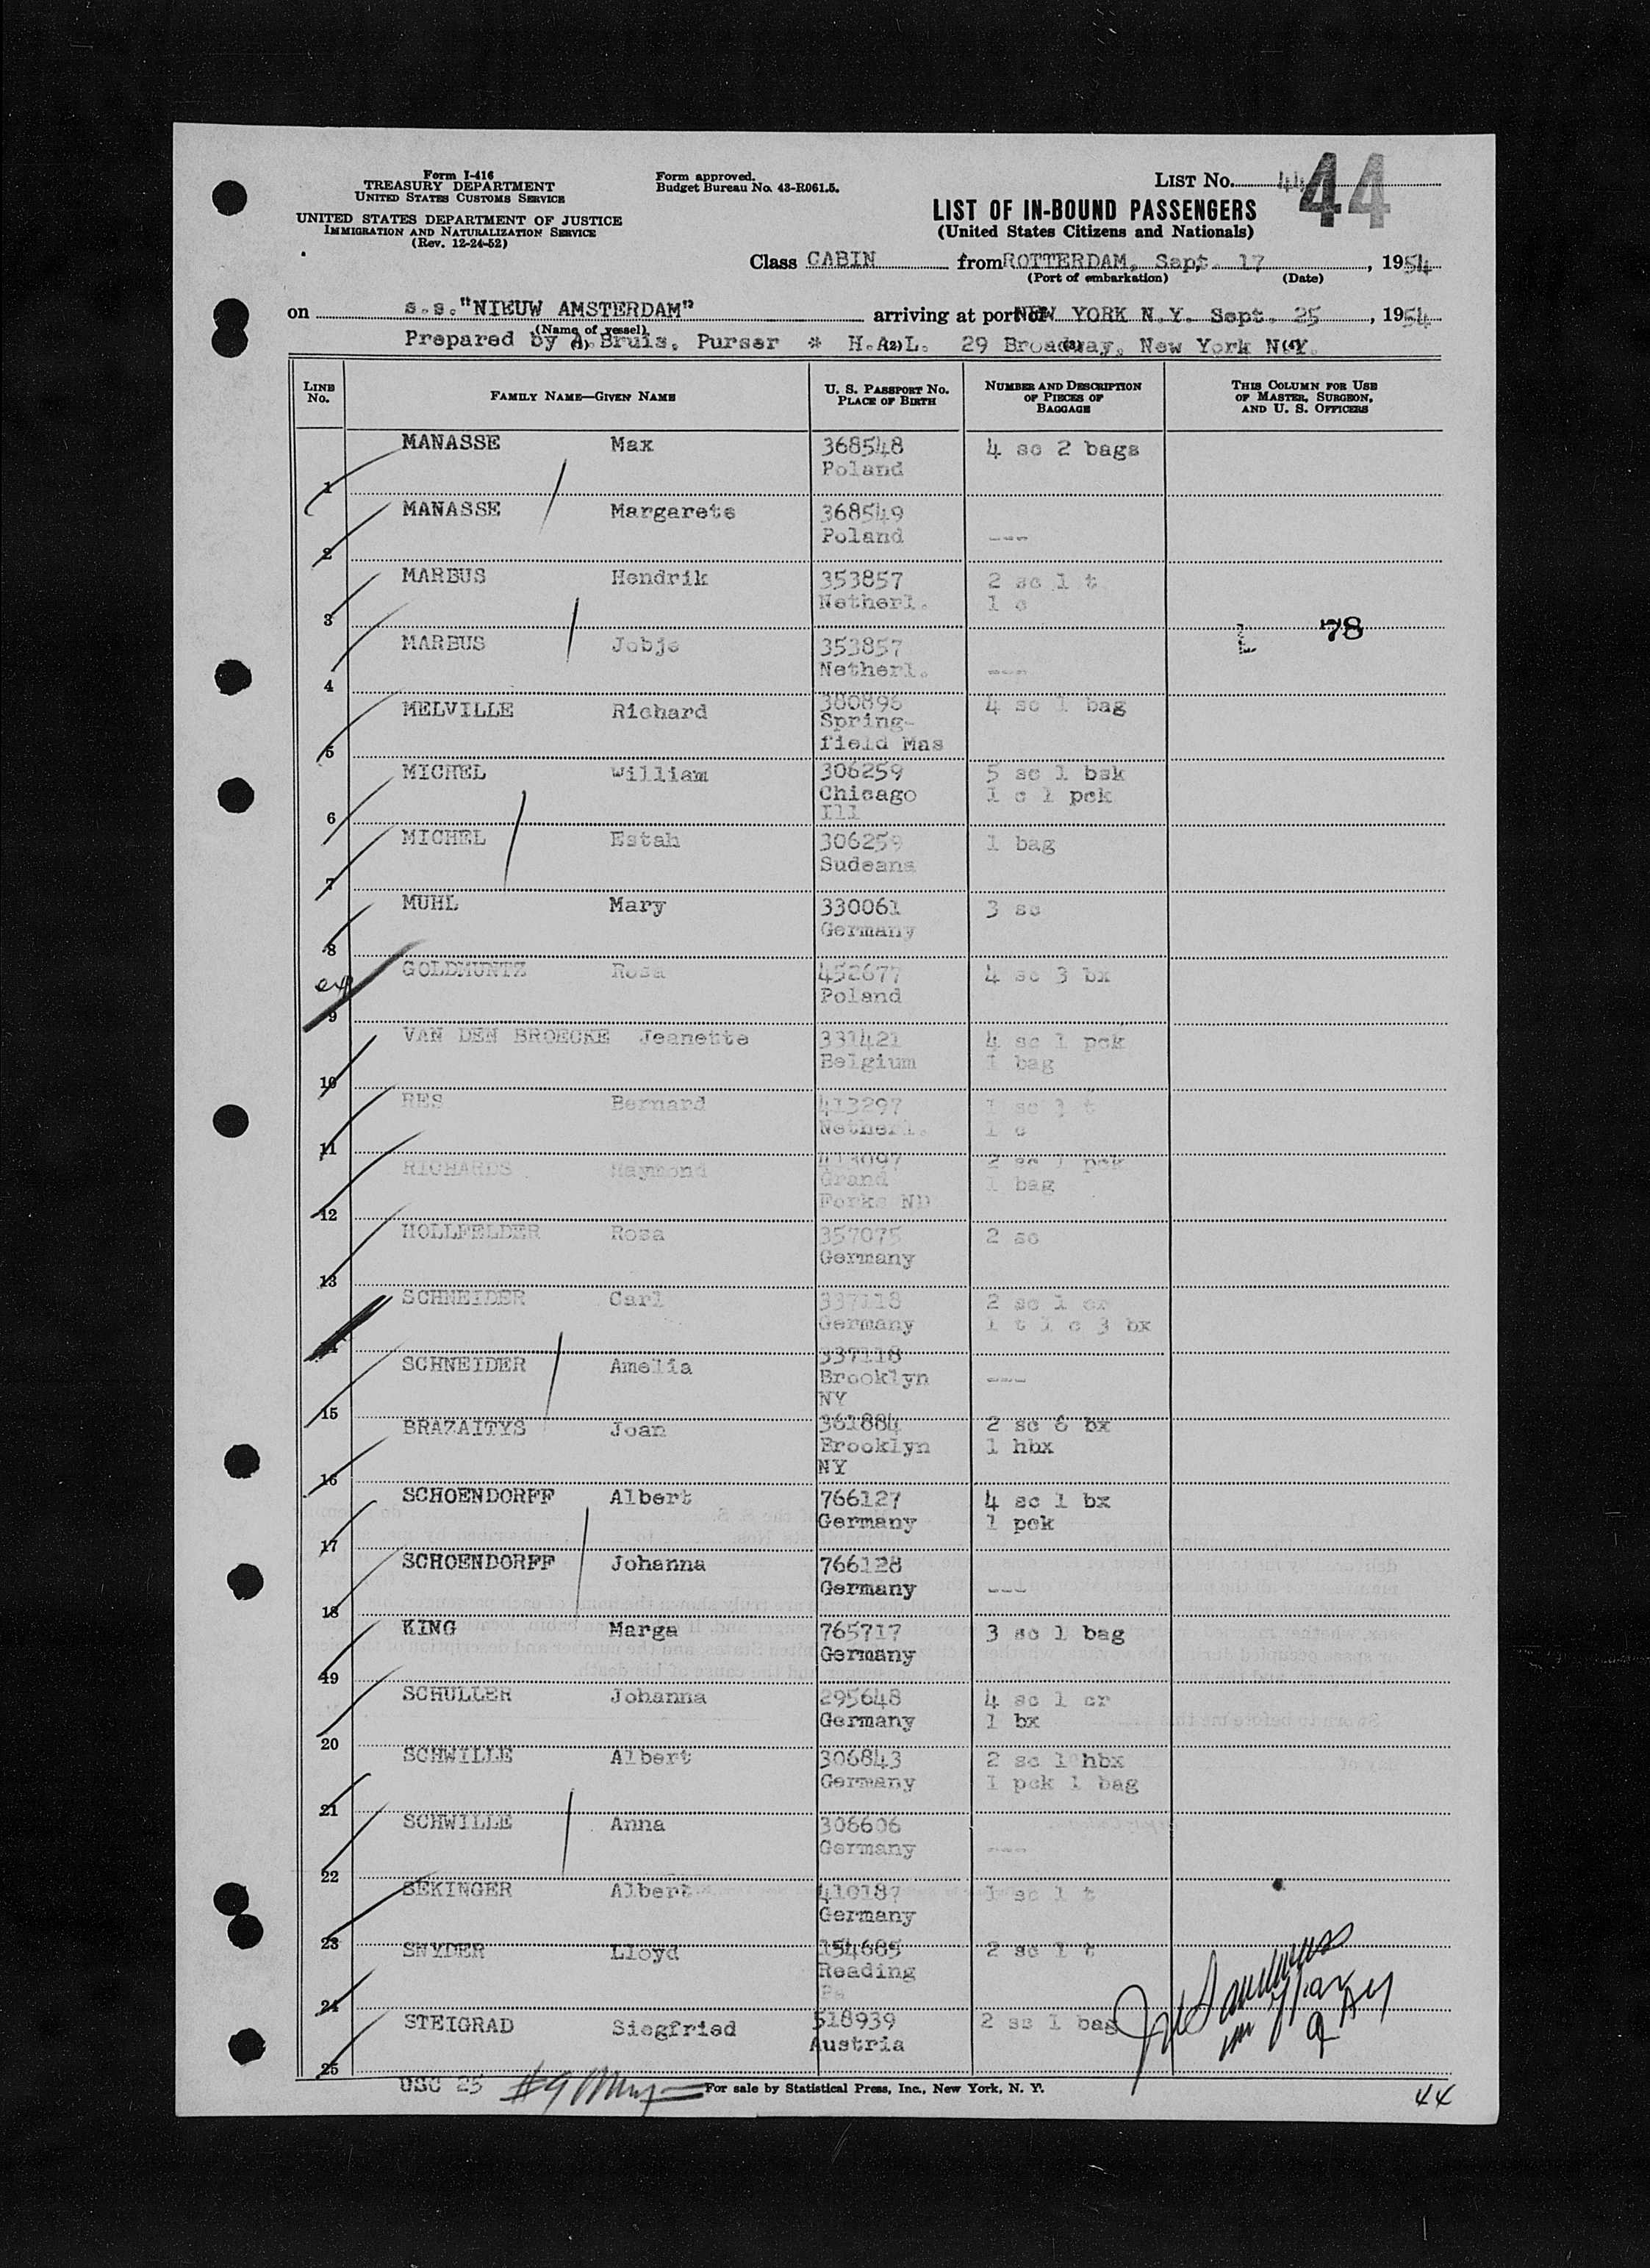 Form I-416
TREASURY DEPARTMENT
UNITED STATES CUSTOMS SERVICE
UNITED STATES DEPARTMENT OF JUSTICE
IMMIGRATION AND NATURALIZATION SERVICE
(Rev. 12-24-52)
Form approved.
Budget Bureau No. 43-R061.5.
LIST NO. 44
44
LIST OF IN-BOUND PASSENGERS
(United States Citizens and Nationals)
Class CABIN from ROTTERDAM, Sept. 17, 1954
(Port of embarkation) (Date)
on s.s."NIEUW AMSTERDAM" arriving at port of NEW YORK N.Y. Sept. 25, 1954
(Name of vessel)
Prepared by A. Bruis, Purser * H.A.L. 29 Broadway, New York N.Y.
(1) (2) (3) (4)
LINE NO. FAMILY NAME—GIVEN NAME U. S. PASSPORT NO. PLACE OF BIRTH NUMBER AND DESCRIPTION OF PIECES OF BAGGAGE THIS COLUMN FOR USE OF MASTER, SURGEON, AND U. S. OFFICERS
MANASSE Max 368548 4 sc 2 bags
Poland
1
MANASSE Margarete 368549
Poland ---
2
MARBUS Hendrik 353857 2 sc 1 t
Netherl. 1 c
3
78
MARBUS Jobje 353857
Netherl. ---
4
MELVILLE Richard 380896 4 sc 1 bag
Spring-
field Mas
5
MICHEL William 306259 5 sc 1 bsk
Chicago 1 c 1 pck
Ill
6
MICHEL Estah 306259 1 bag
Sudeans
7
MUHL Mary 330061 3 sc
Germany
8
GOLDMUNTZ Rosa 452677 4 sc 3 bx
Poland
9
VAN DEN BROECKE Jeanette 331421 4 sc 1 pck
Belgium 1 bag
10
RES Bernard 413297 1 sc 3 t
Netherl. 1 c
11
RICHARDS Raymond 413097 2 sc 1 pck
Grand 1 bag
Forks ND
12
HOLLFELDER Rosa 357075 2 sc
Germany
13
SCHNEIDER Carl 337118 2 sc 1 cr
Germany 1 t 1 c 3 bx
14
SCHNEIDER Amelia 337118
Brooklyn ---
NY
15
BRAZAITYS Joan 361884 2 sc 6 bx
Brooklyn 1 hbx
NY
16
SCHOENDORFF Albert 766127 4 sc 1 bx
Germany 1 pck
17
SCHOENDORFF Johanna 766128
Germany ---
18
KING Marga 765717 3 sc 1 bag
Germany
19
SCHULLER Johanna 295648 4 sc 1 cr
Germany 1 bx
20
SCHWILLE Albert 306843 2 sc 1 hbx
Germany 1 pck 1 bag
21
SCHWILLE Anna 306606
Germany ---
22
SEKINGER Albert 410187 1 sc 1 t
Germany
23
SNYDER Lloyd 154685 2 sc 1 t
Reading
Pa
24
STEIGRAD Siegfried 518939 2 sc 1 bag
Austria
25
USC 25
For sale by Statistical Press, Inc., New York, N. Y.
44